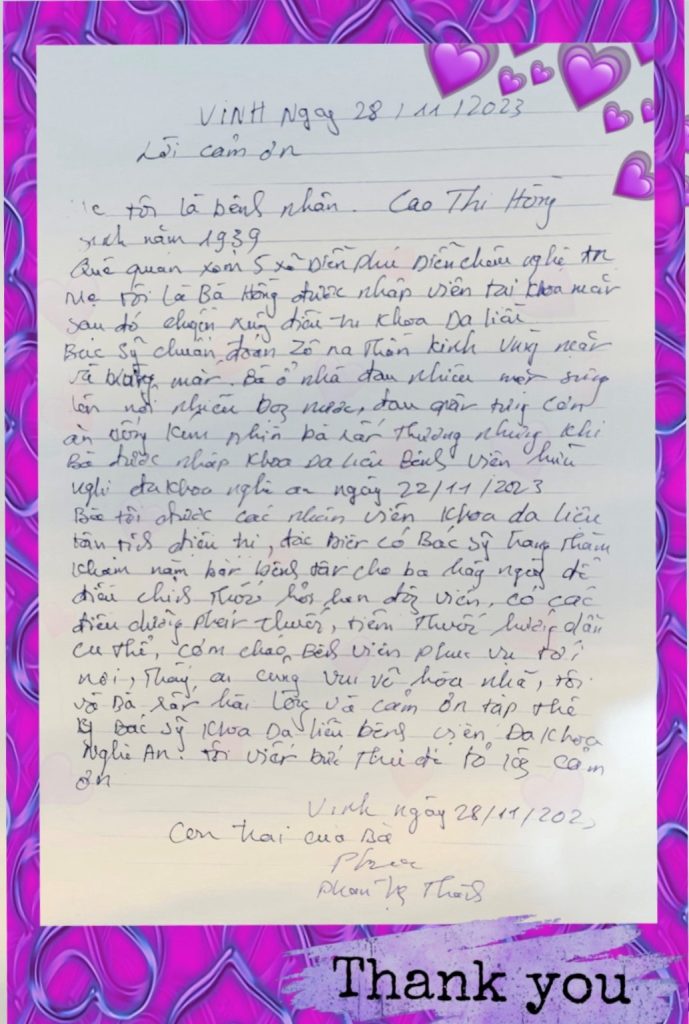 Vinh Ngày 28/11/2023
Lời cảm ơn
tôi là bệnh nhân. Cao Thị Hồng
sinh năm 1939
Quê quán xóm 5 xã Diễn Phú Diễn Châu nghệ an
Mẹ tôi là Bà Hồng được nhập viện tại khoa mắt
sau đó chuyển xuống điều trị khoa Da liễu
Bác sỹ chuẩn đoán Zô na thần kinh vùng mắt
và màt. Bà ở nhà đau nhiều mặt sưng
lên nổi nhiều bọng nước, đau quặn từng cơn
ăn uống kém nhìn bà rất thương nhưng khi
Bà được nhập khoa Da liễu Bệnh viện hữu
nghị đa khoa nghệ an ngày 22/11/2023
Bà tôi được các nhân viên khoa da liễu
tận tình điều trị, đặc biệt có Bác sỹ Trang thăm
khám nắm bắt bệnh tật cho bà hằng ngày để
điều chỉnh thuốc hỏi han động viên, có các
điều dưỡng phát thuốc, tiêm thuốc hướng dẫn
cụ thể, cơm cháo Bệnh viện phục vụ tới
nơi, thấy ai cũng vui vẻ hòa nhã, tôi
và Bà rất hài lòng và cảm ơn tập thể
Bác sỹ khoa Da liễu bệnh viện Đa khoa
Nghệ An. tôi viết bức thư để tỏ lòng cảm
ơn
Vinh ngày 28/11/202
Con trai của Bà
Phan
Thank you